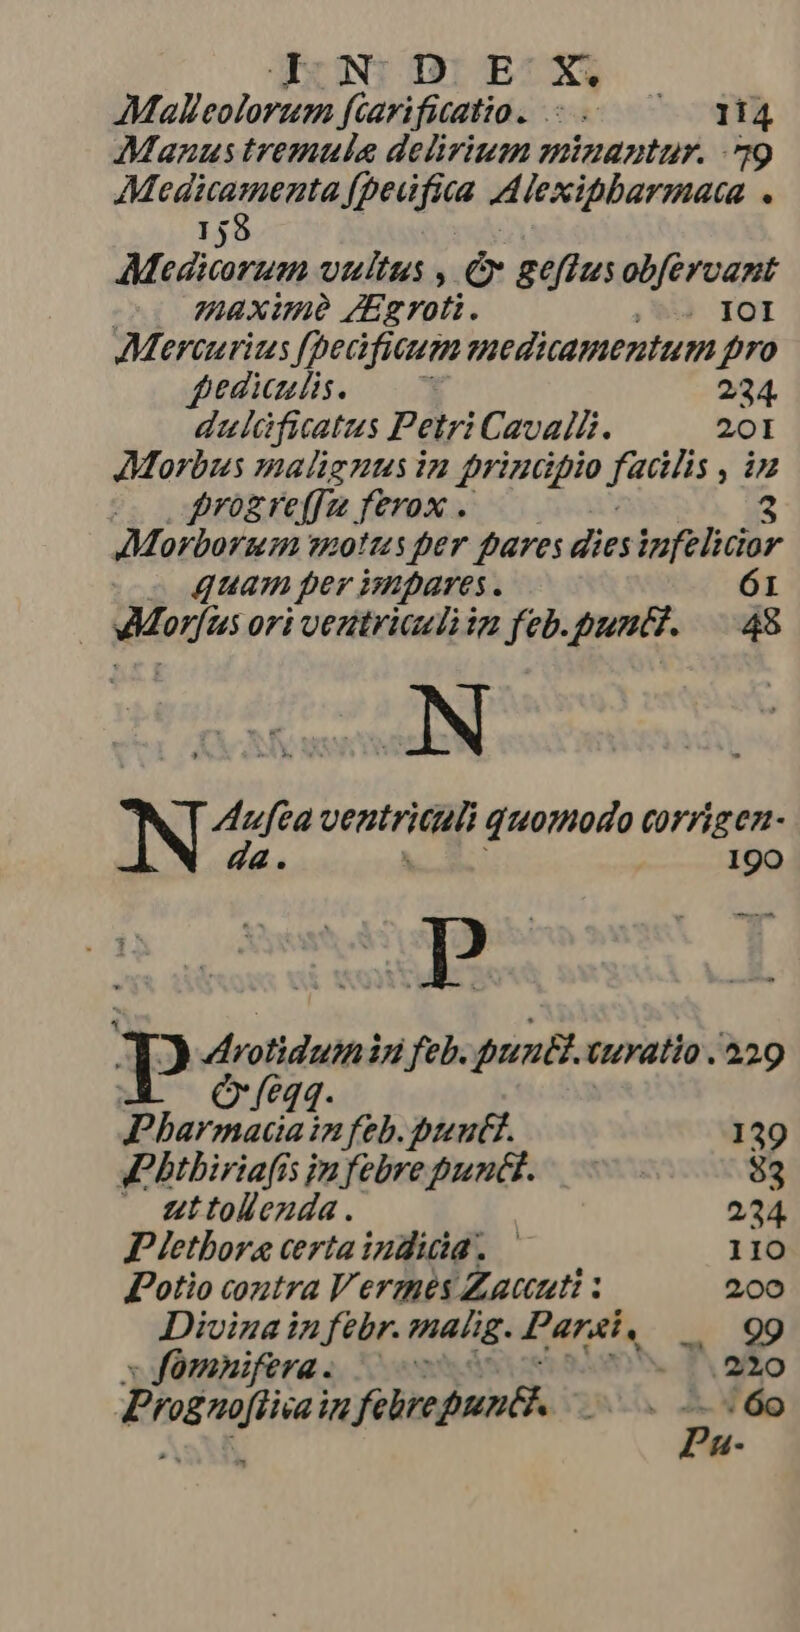 INDEX.
Malleolorum ſcarificatio. 114
Manus tremulæ delirium minantur. 79
Medicamenta ſpecifica Alexipharmaca .
158
Medicorum vultus , & geſtus obſervant
maximè Ægroti. 101
Mercurius ſpecificum medicamentum pro
pediculis. 234
dulcificatus Petri Cavalli. 201
Morbus malignus in principio facilis , in
progreſſu ferox . 3
Morborum motus per pares dies infelicior
quam per impares. 61
Morſus ori ventriculi in feb. punct. 48
N
Nauſea ventriculi quomodo corrigen-
da. 190
P
Parotidum in feb. punct. curatio . 229
& ſeqq.
Pharmacia in feb. punct. 139
Phthiriaſis in febre punct. 83
ut tollenda . 234
Plethoræ certa indicia . 110
Potio contra Vermes Zaccuti : 200
Divina in febr. malig. Paræi, 99
ſomnifera . 220
Prognoſtica in febre punct. 60
Pu-